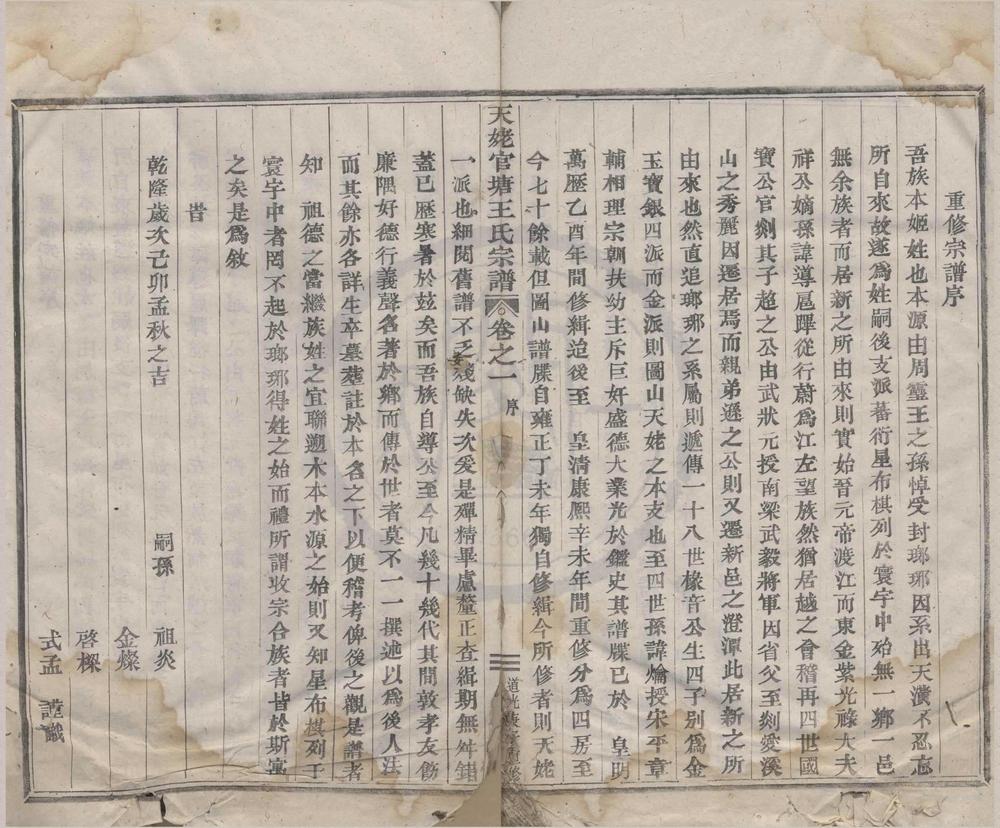 重修宗譜序
吾族本姬姓也本源由周靈王之孫悼受封瑯琊因系出天潢不忍忘
所自來故遂爲姓嗣後支派蕃衍星布棋列於寰宇中殆無一鄉一邑
無余族者而居新之所由來則實始晉元帝渡江而東金紫光祿大夫
祥公嫡孫諱導扈蹕從行蔚爲江左望族然猶居越之會稽再四世國
寶公官剡其子超之公由武狀元授南梁武毅將軍因省父至剡愛溪
山之秀麗因遷居焉而親弟遜之公則又遷新邑之澄潭此居新之所
由來也然直追瑯琊之系屬則遞傳一十八世橡音公生四子別爲金
玉寶銀四派而金派則圖山天姥之本支也至四世孫諱爚授宋平章
輔相理宗朝扶幼主斥巨奸盛德大業光於鑑史其譜牒已於 皇明
萬歷乙酉年間修緝迨後至 皇清康熙辛未年間重修分爲四房至
今七十餘載但圖山譜牒自雍正丁未年獨自修緝今所修者則天姥
天姥官塘王氏宗譜 卷之一 序
道光 重修
一派也細閱舊譜不乏殘缺失次爰是殫精畢慮釐正查緝期無舛錯
蓋已歷寒暑於茲矣而吾族自導公至今凡幾十幾代其間敦孝友飭
廉隅好德行義聲名著於鄉而傳於世者莫不一一撰述以爲後人法
而其餘亦各詳生卒墓塟註於本名之下以便稽考俾後之觀是譜者
知 祖德之當繼族姓之宜聯遡木本水源之始則又知星布棋列于
寰宇中者罔不起於瑯琊得姓之始而禮所謂收宗合族者皆於斯寓
之矣是爲敘
旹
乾隆歲次己卯孟秋之吉 嗣孫 祖炎
金燦
啓樑
式孟 謹識